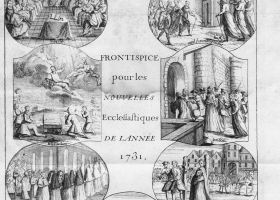 FRONTISPICE
pour les
NOUVELLES
Ecclesiastiques
DE L'ANNEE
1731.